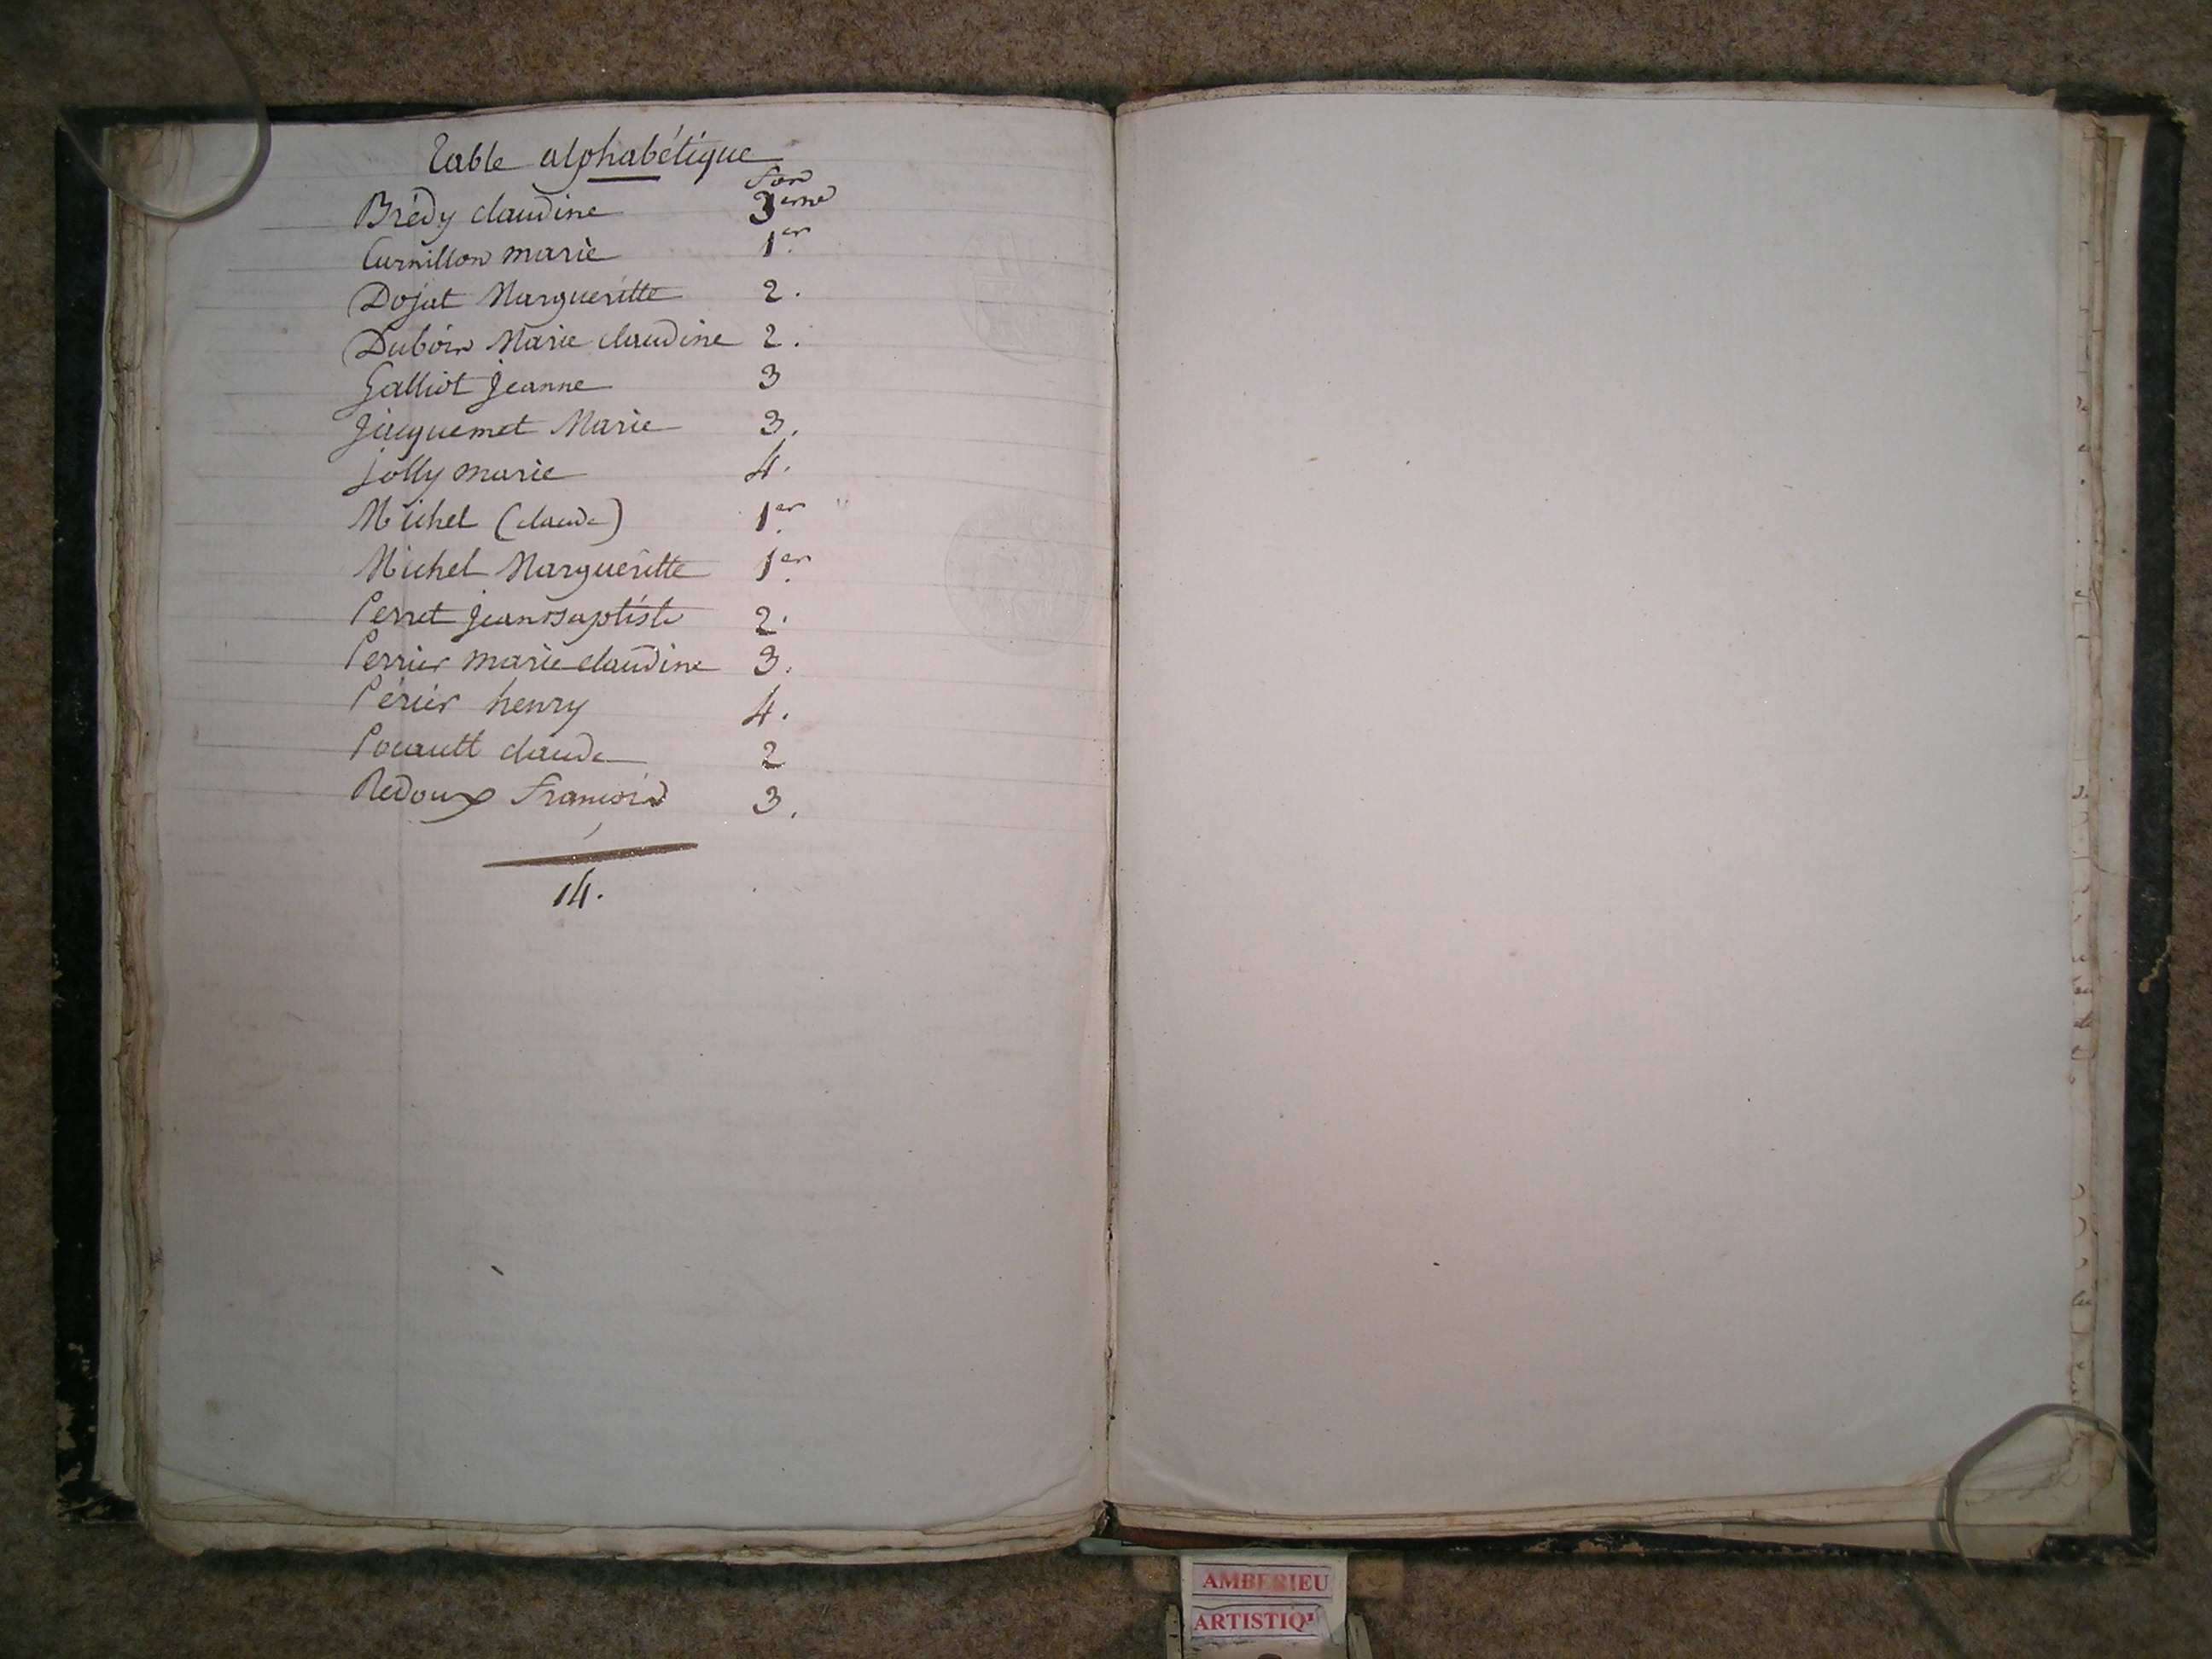 Table alphabétique
fos
Brédy claudine 3eme
Curnillon marie 1er
Dojat Margueritte 2.
Dubois Marie claudine 2.
Galliot Jeanne 3
Jacquemet Marie 3.
jolly marie 4.
Michel (claude) 1er
Michel Margueritte 1er
Perret jean Baptiste 2.
Perrier marie claudine 3.
Périer henry 4.
Pouault claude 2
Redoux François 3.
14.
AMBERIEU
ARTISTIQ